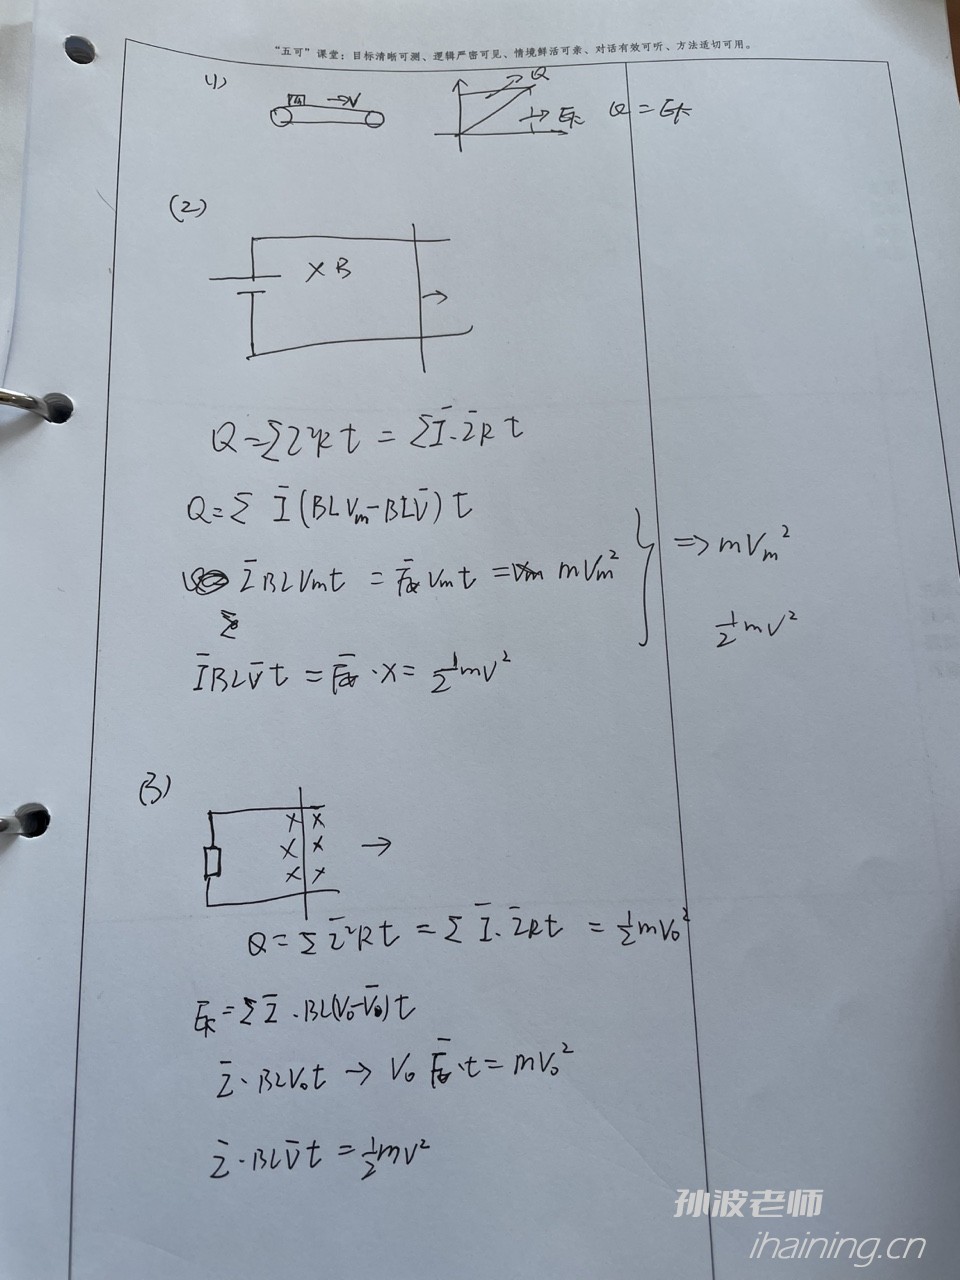 “五可”课堂：目标清晰可测、逻辑严密可见、情境鲜活可亲、对话有效可听、方法适切可用。
(1)
→V
Q
→ Ek
Q = Ek
(2)
× B
Q = ΣI²Rt = ΣĪ·ĪRt
Q = Σ Ī(BLVm-BLV̄)t
ĪBLVmt = F̄安Vmt = mVm²
⇒ mVm²
½mv²
ĪBLV̄t = F̄安·x = ½mv²
(3)
× ×
× ×
× ×
Q = ΣĪ²Rt = ΣĪ·ĪRt = ½mV₀²
Ek = ΣĪ·BL(V₀-V̄₀)t
Ī·BLV₀t → V₀F̄安·t = mV₀²
Ī·BLV̄t = ½mv²
孙波老师
ihaining.cn